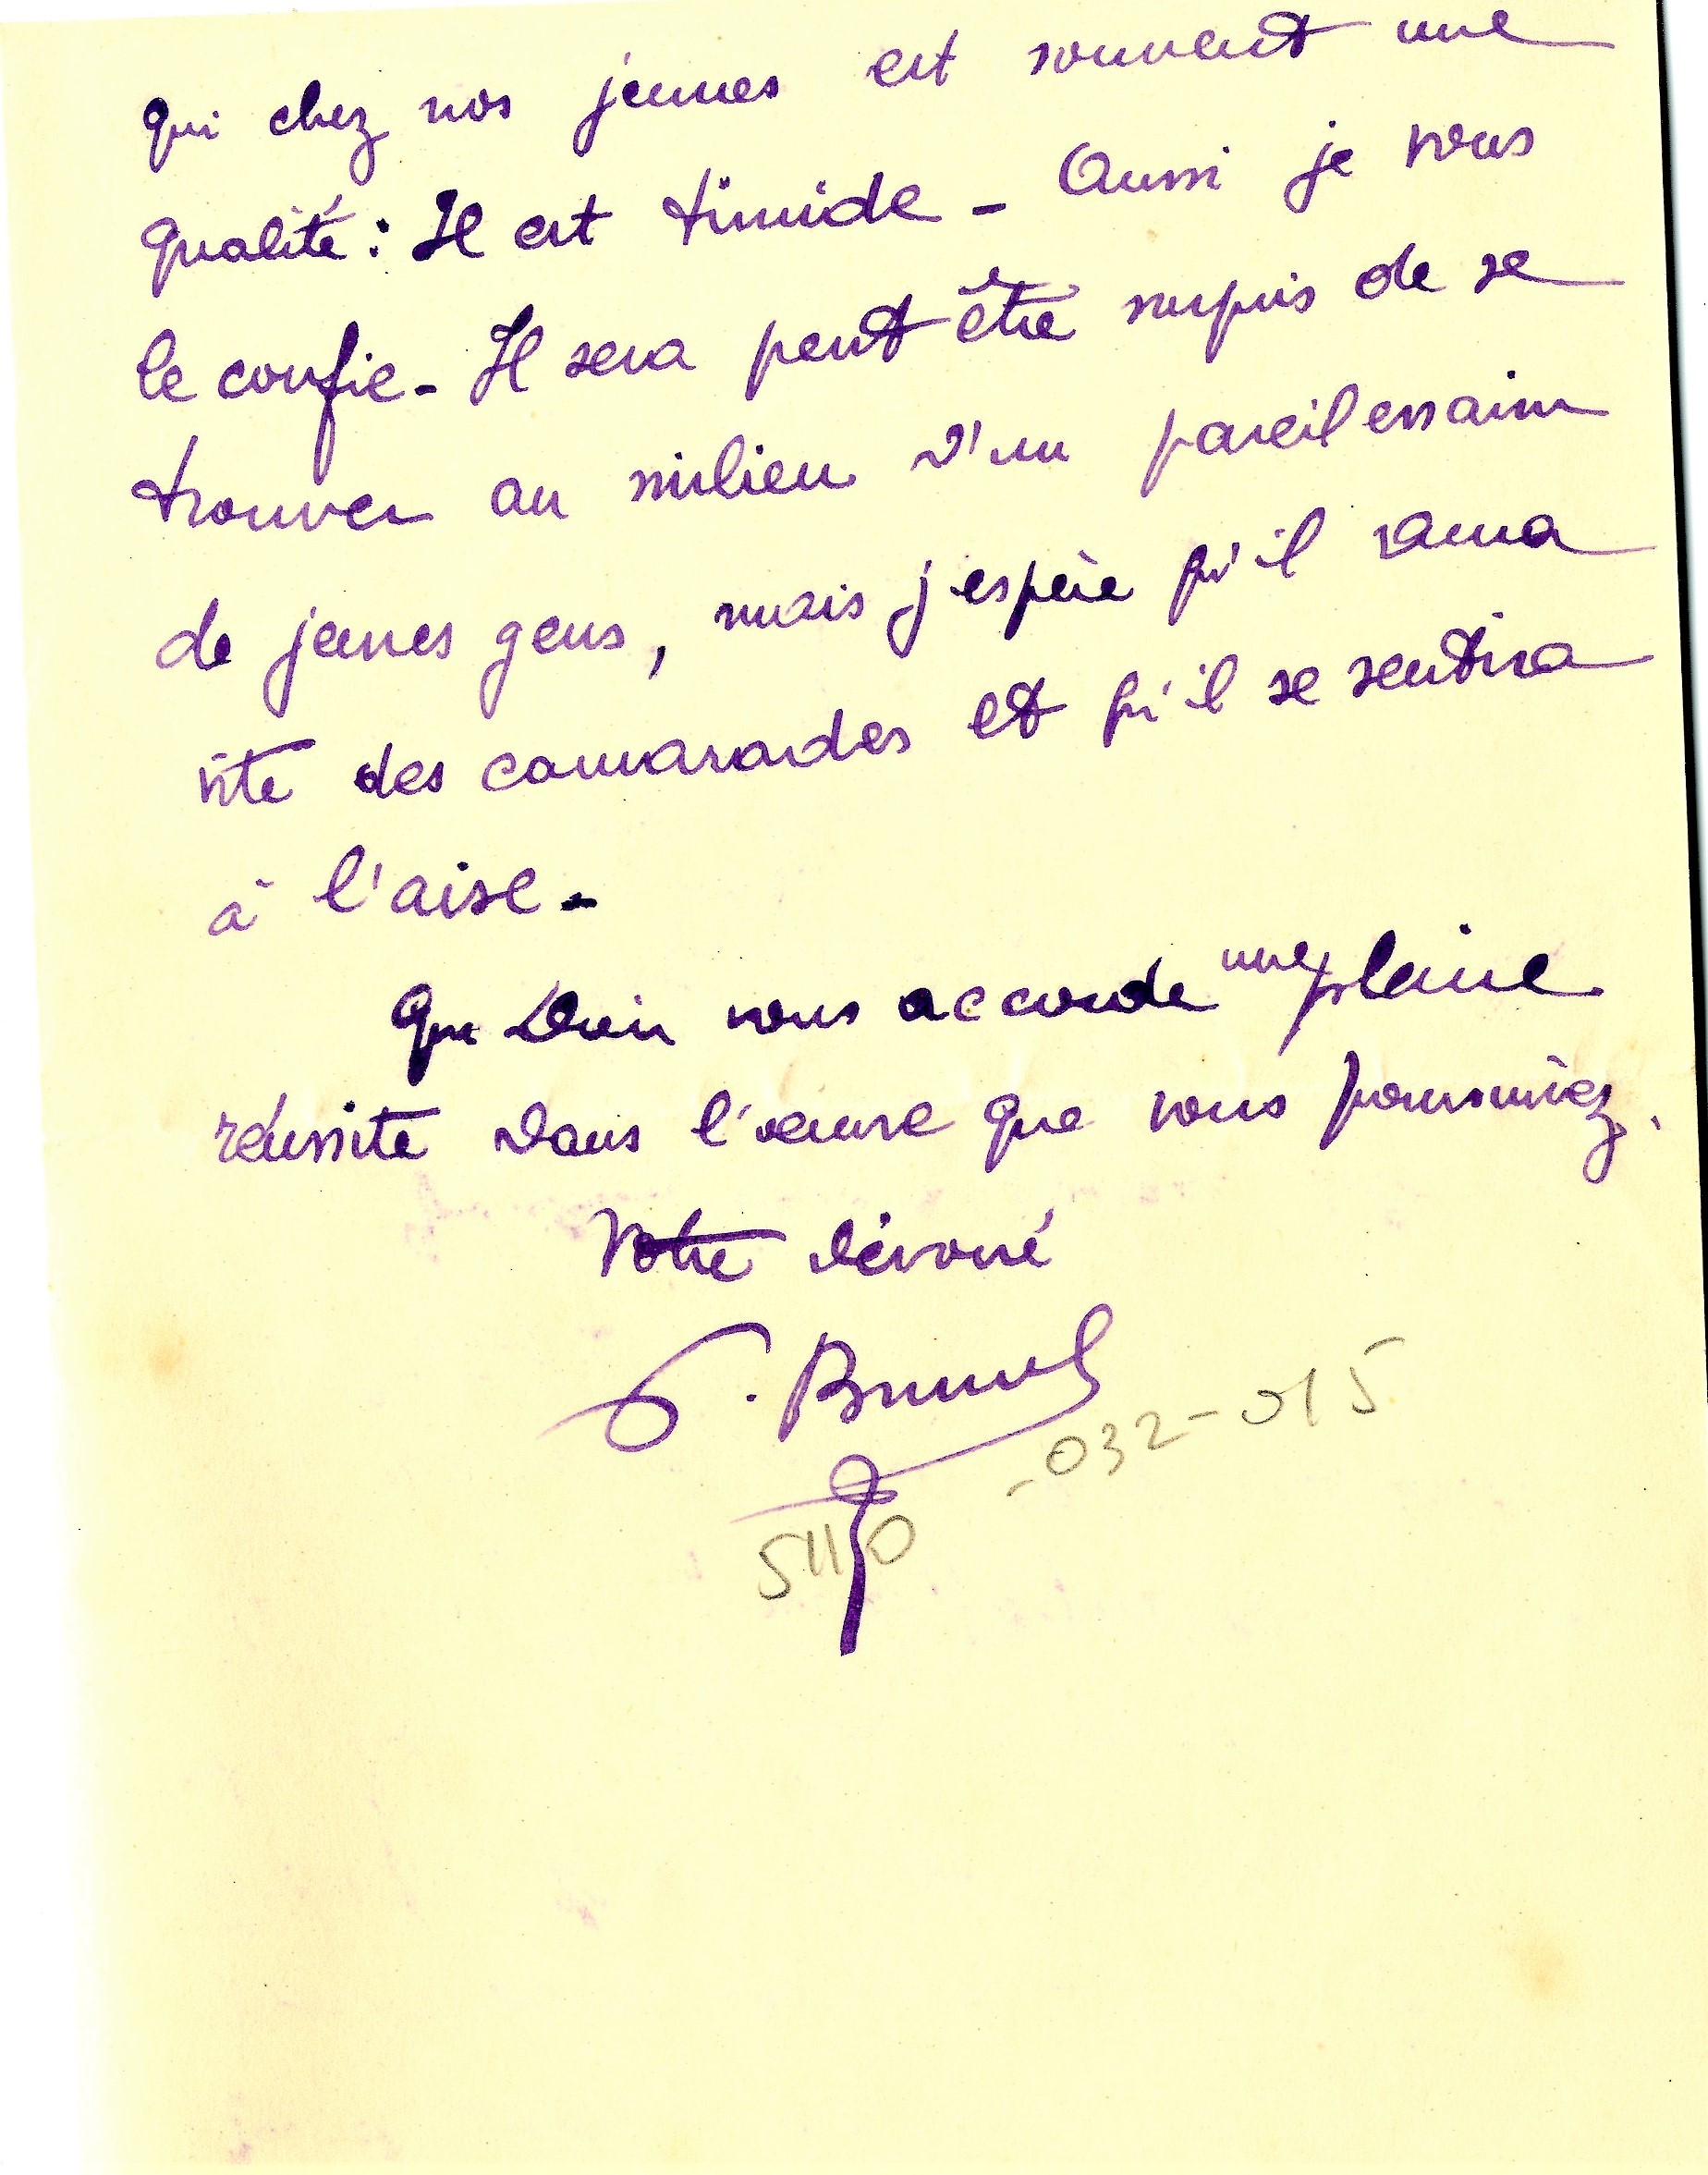 qui chez nos jeunes est souvent une
qualité : Il est timide - Aussi je vous
le confie - Il sera peut être surpris de se
trouver au milieu d'un pareil essaim
de jeunes gens, mais j'espère qu'il saura
vite des camarades et qu'il se sentira
à l'aise -
Que Dieu vous accorde une pleine
réussite dans l'oeuvre que vous poursuivez.
Votre dévoué
Brunel
5110 - 032 - 015